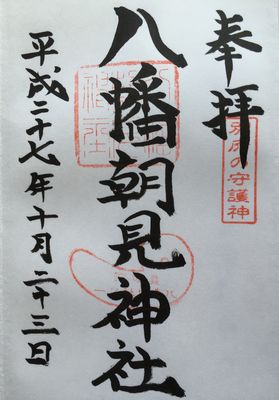 奉拝
別府の守護神
八幡朝見神社
平成二十七年十月二十三日